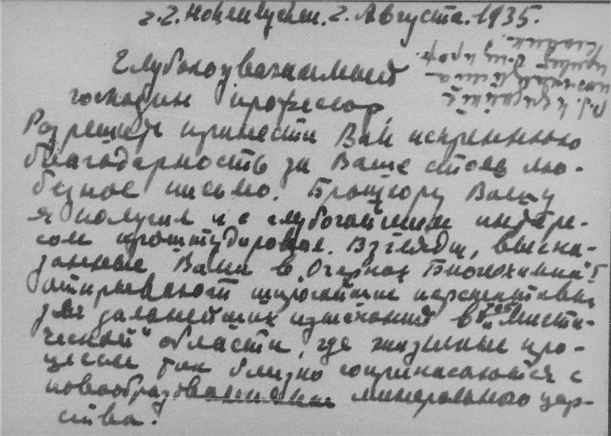 2. Августа. 1935.
Глубокоуважаемый
господин профессор
Разрешите принести Вам искреннюю
благодарность за Ваше столь лю-
безное письмо. Брошюру Вашу
я получил и с глубочайшим интере-
сом проштудировал. Взгляды, выска-
занные Вами в „Очерках Биохимии"
открывают широчайшие перспективы
для дальнейших изысканий в "мисти-
ческой" области, где жизненные про-
цессы так близко соприкасаются с
новообразованиями минерального цар-
ства!